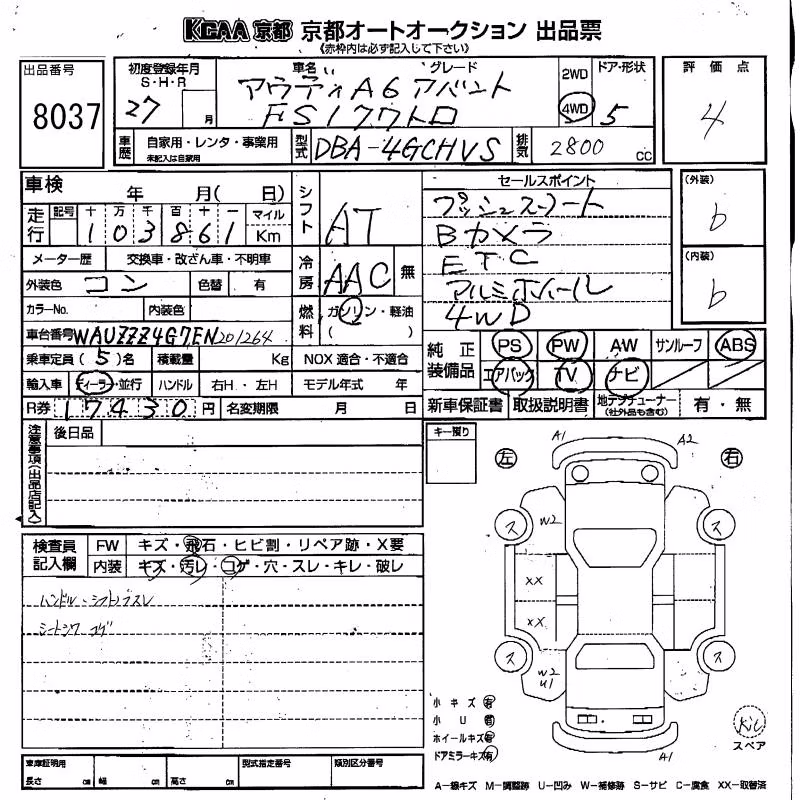 KCAA 京都 京都オートオークション 出品票
《赤枠内は必ず記入して下さい》
出品番号
8037
初度登録年月
S・H・R
27
月
車名
グレード
アウディA6アバント
FSIクワトロ
2WD
4WD
ドア・形状
5
評価点
4
車歴
自家用・レンタ・事業用
未記入は自家用
型式
DBA-4GCHVS
排気
2800
CC
車検
年
月(
日)
シフト
AT
セールスポイント
プッシュスタート
Bカメラ
ETC
アルミホイール
4WD
(外装)
b
(内装)
b
走行
記号
十
万
千
百
十
一
マイル
1 0 3 8 6 1
Km
メーター歴
交換車・改ざん車・不明車
冷房
AAC
無
外装色
コン
色替
有
カラーNo.
内装色
燃料
ガソリン・軽油
( )
車台番号
WAUZZZ4G7EN201264
乗車定員
( 5 )名
積載量
Kg
NOX 適合・不適合
純正装備品
PS
PW
AW
サンルーフ
ABS
エアバック
TV
ナビ
輸入車
ディーラー・並行
ハンドル
右H・左H
モデル年式
年
R券
17430円
名変期限
月
日
新車保証書
取扱説明書
地デジチューナー
(社外品も含む)
有・無
注意事項(出品店記入)
後日品
キー預り
左
右
A1
A2
ス
ス
W2
XX
XX
ス
ス
W2
U1
A1
検査員記入欄
FW
キズ・飛石・ヒビ割・リペア跡・X要
内装
キズ・汚レ・コゲ・穴・スレ・キレ・破レ
ハンドル・シフトノブスレ
シートシワ コゲ
小キズ 有
小U 有
ホイールキズ 有
ドアミラーキズ 有
スペア
車庫証明用
長さ
cm
幅
cm
高さ
cm
型式指定番号
類別区分番号
A―線キズ M―調整跡 U―凹み W―補修跡 S―サビ C―腐食 XX―取替済